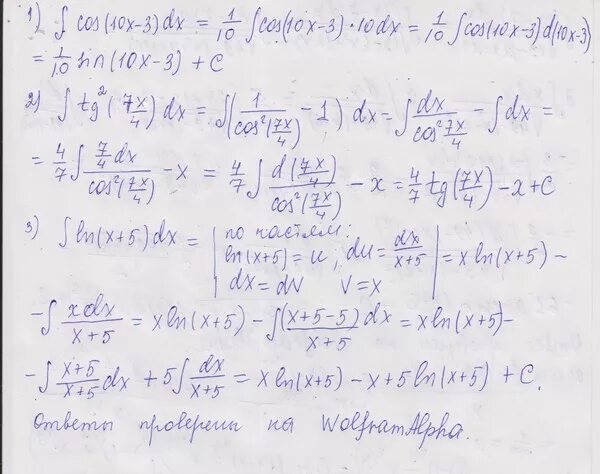 1) ∫ cos(10x-3)dx = 1/10 ∫cos(10x-3)·10dx = 1/10 ∫cos(10x-3)d(10x-3)
= 1/10 sin(10x-3) + C
2) ∫ tg²(7x/4)dx = ∫(1/cos²(7x/4) - 1) dx = ∫ dx/cos² 7x/4 - ∫ dx =
= 4/7 ∫ 7/4 dx/cos²(7x/4) - x = 4/7 ∫ d(7x/4)/cos²(7x/4) - x = 4/7 tg(7x/4) - x + C
3) ∫ ln(x+5)dx = | по частям: ln(x+5) = u, du = dx/x+5 dx = dv v = x | = x ln(x+5) -
- ∫ xdx/x+5 = x ln(x+5) - ∫ (x+5-5)dx/x+5 = x ln(x+5) -
- ∫ x+5/x+5 dx + 5∫ dx/x+5 = x ln(x+5) - x + 5 ln(x+5) + C.
Ответы проверены на WolframAlpha.